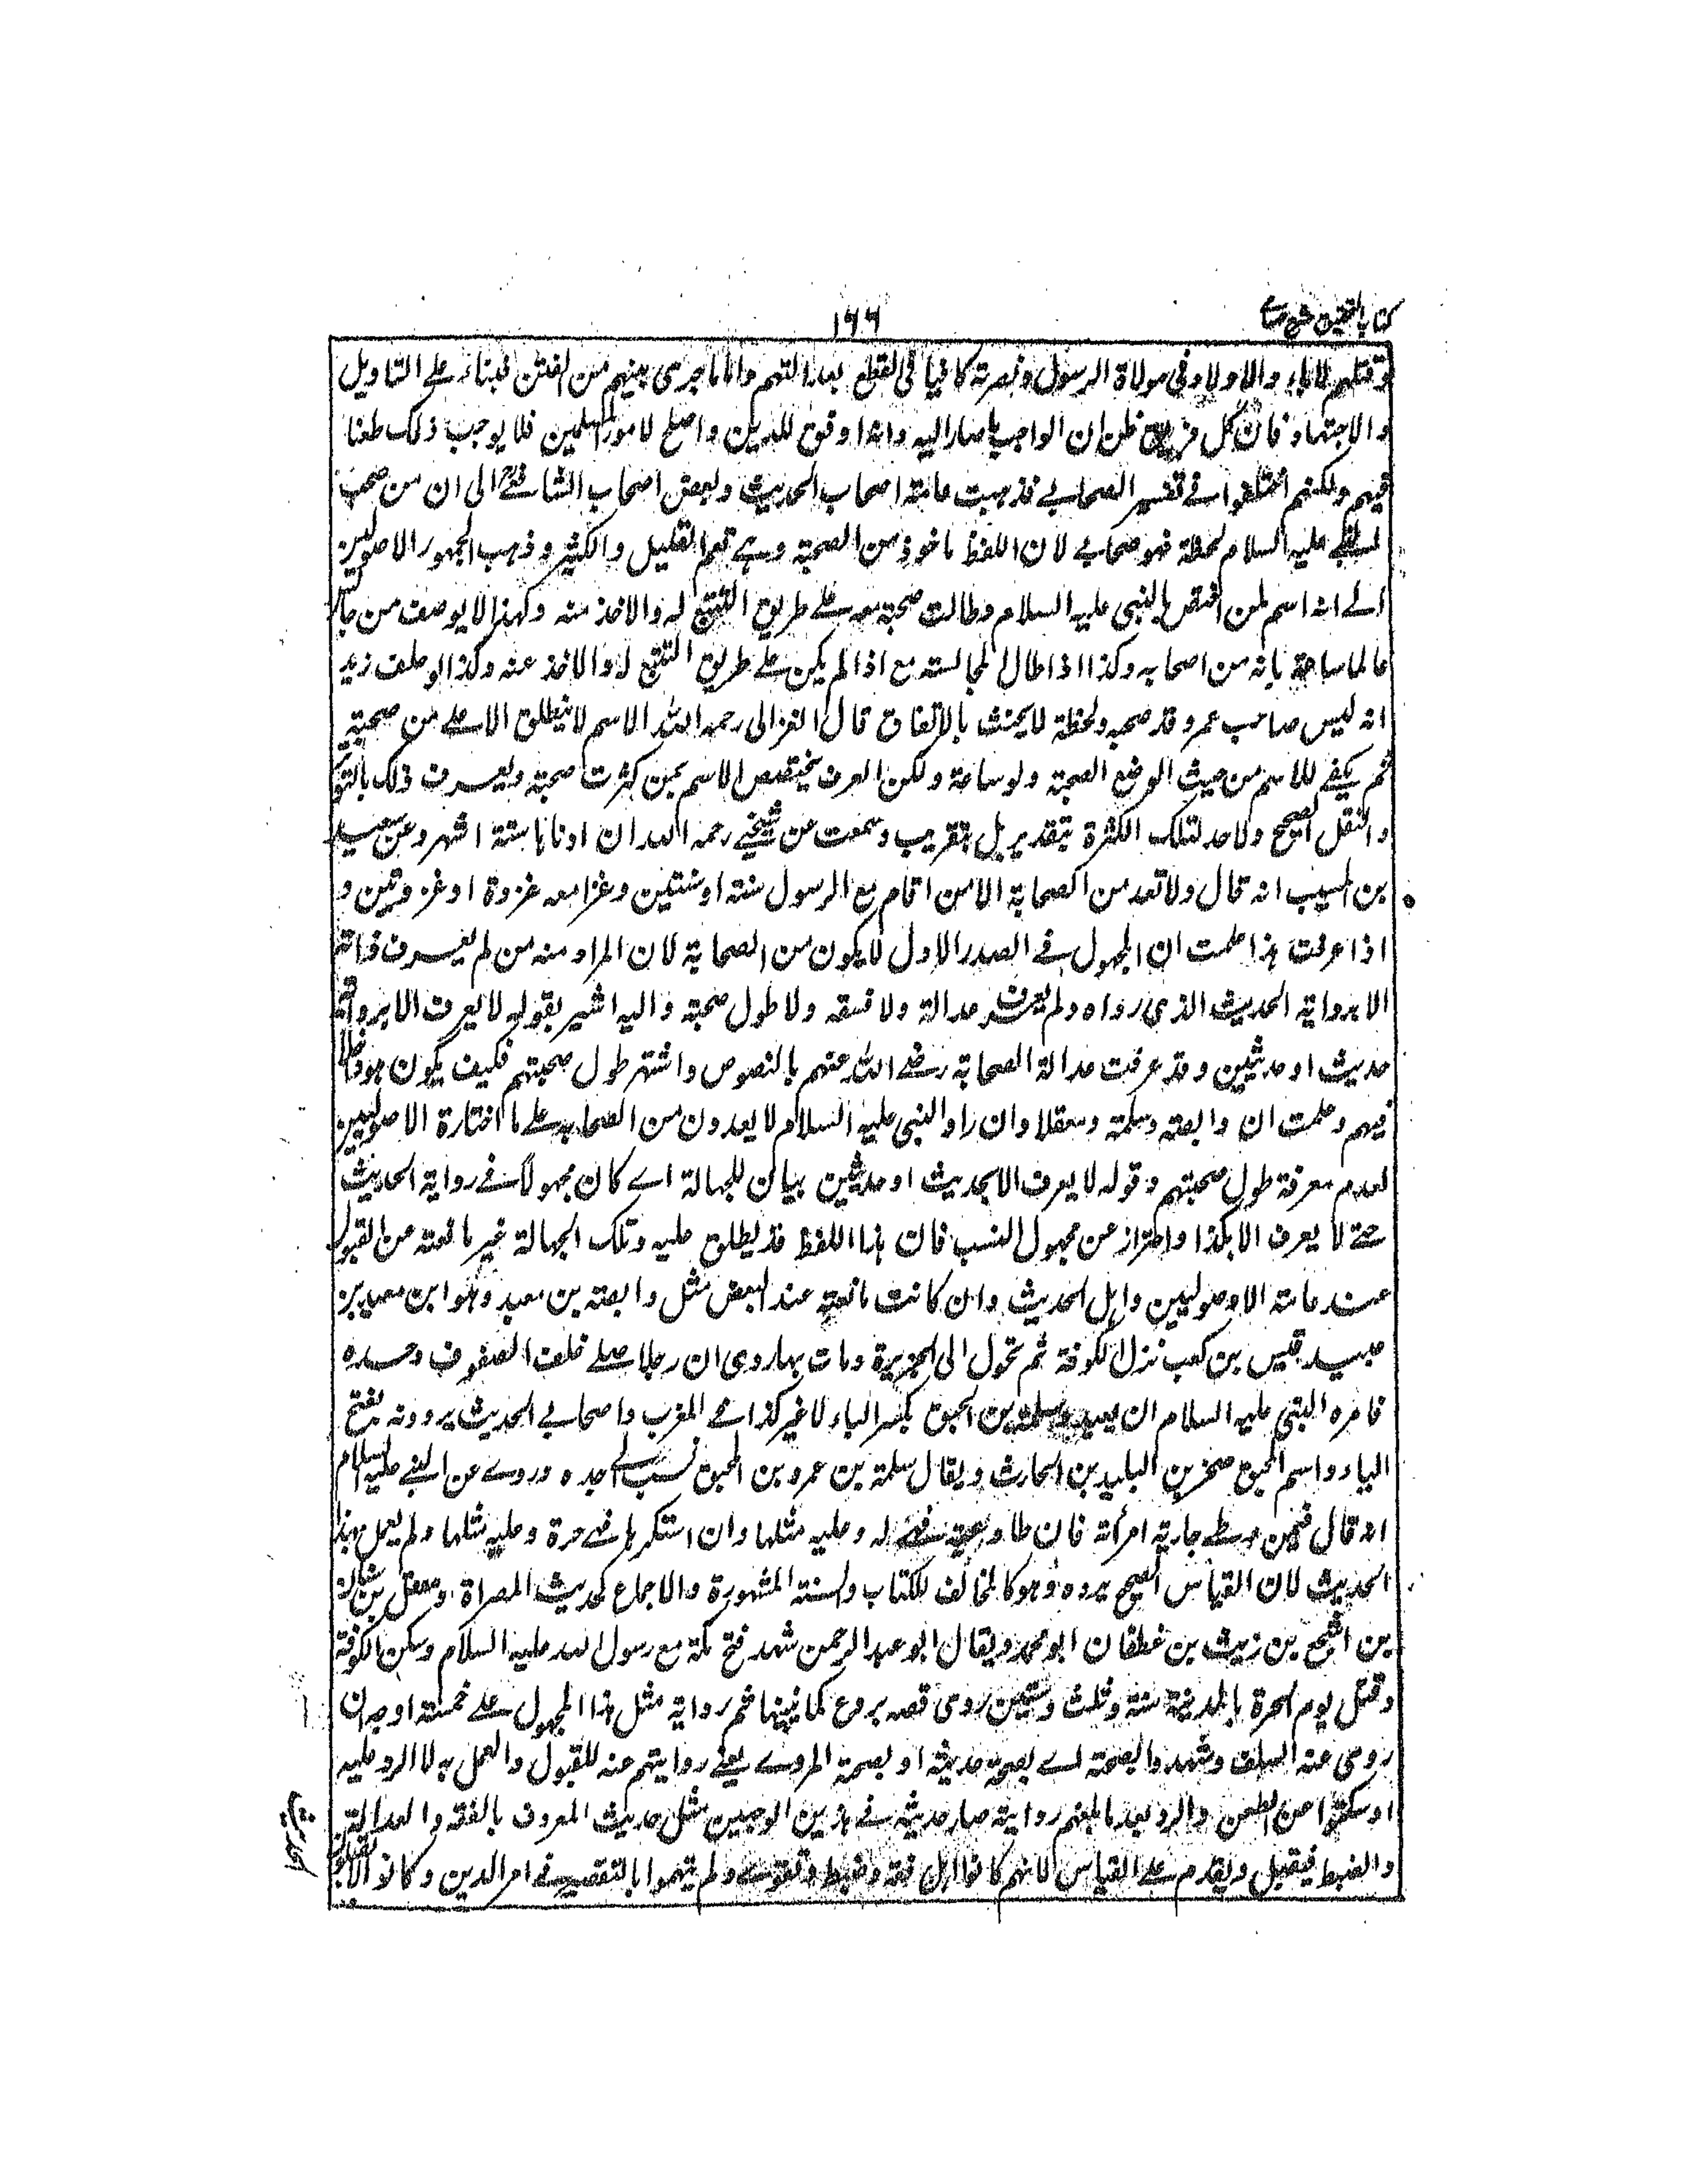 كتاب التحقيق شرح حسامي
١٦٦
وقتلهم لاباء والاولاد في موالاة الرسول ونصرته كافيا في القطع بعدالتهم واما ما جرى بينهم من الفتن فبناء على التاويل
والاجتهاد فان كل فريق ظن ان الواجب ما صار اليه وانه اوفق للدين واصلح لامور المسلمين فلا يوجب ذلك طعنا
فيهم ولكنهم اختلفوا في تفسير الصحابي فذهبت عامة اصحاب الحديث وبعض اصحاب الشافعي الى ان من صحب
النبي عليه السلام لحظة فهو صحابي لان اللفظ ماخوذ من الصحبة وهي تعم القليل والكثير وذهب الجمهور الاصوليين
الى انه اسم لمن اختص بالنبي عليه السلام وطالت صحبته معه على طريق التتبع له والاخذ منه ولهذا لا يوصف من جالس
عالما ساعة بانه من اصحابه وكذا اذا طال المجالسته مع اذا لم يكن على طريق التتبع له والاخذ عنه وكذا لو حلف زيد
انه ليس صاحب عمرو قد صحبه ولحظة لا يحنث بالاتفاق قال الغزالى رحمه الله الاسم لا ينطلق الا على من صحبته
ثم يكفي للاسم من حيث الوضع الصحبة ولو ساعة ولكن العرف يختصص الاسم بمن كثرت صحبته ويعرف ذلك بالتواتر
والنقل الصحيح ولا حد لتلك الكثرة بتقدير بل بتقريب وسمعت عن شيخي رحمه الله ان ادناها ستة اشهر وعن سعيد
بن المسيب انه قال ولا تعد من الصحابة الا من اقام مع الرسول سنة او سنتين وغزا معه غزوة او غزوتين و
اذا عرفت هذا علمت ان المجهول في الصدر الاول لا يكون من الصحابة لان المراد منه من لم يعرف ذاته
الا برواية الحديث الذى رواه ولم يعرف عدالة ولا فسقه ولا طول صحبته واليه اشير بقوله لا يعرف الا برواية
حديث او حديثين وقد عرفت عدالة الصحابة رضي الله عنهم بالنصوص واشتهر طول صحبتهم فكيف يكون هو داخلا
فيهم وعلمت ان وابصة وسلمة ومعقلا وان راو النبي عليه السلام لا يعدون من الصحابة على ما اختارة الاصوليين
لعدم معرفة طول صحبتهم وقوله لا يعرف الا بحديث او حديثين بيان للجهالة اي كان مجهولا في رواية الحديث
حتى لا يعرف الا بكذا واحتراز عن مجهول النسب فان هذا اللفظ قد يطلق عليه وتلك الجهالة غير مانعته من القبول
عند عامته الاوصوليين واهل الحديث وان كانت مانعته عند البعض مثل وابصته بن معبد وهو ابن معبد بن
عبيد قيس بن كعب نزل الكوفة ثم تحول الى الجزيرة ومات بها روى ان رجلا صلى خلف الصفوف وحده
فامره النبي عليه السلام ان يعيد وسلمة بن المحبق بكسر الباء لا غير كذا في المغرب واصحابي الحديث يروونه بفتح
الباء واسم المحبق صخر بن البليد بن الحارث ويقال سلمة بن عمرو بن المحبق نسب الى جده وروى عن النبي عليه السلام
انه قال فيمن وطى جارية امرأته فان طاوعته فهي له وعليه مثلها وان استكرهها فهي حرة وعليه مثلها ولم يعمل بهذا
الحديث لان القياس الصحيح يرده وهو كالمخالف للكتاب والسنة المشهورة والاجماع كحديث المصراة ومعقل بن سنان
بن اشجع بن زيث بن غطفان ابو محمد ويقال ابو عبد الرحمن شهد فتح مكة مع رسول الله عليه السلام وسكن الكوفة
وقتل يوم الحرة بالمدينة سنة وثلث وستين روى قصه بروع كما نبينها ثم رواية مثل هذا المجهول على خمسة اوجه ان
روى عنه السلف وشهد والصحته اي بصحة حديثه او بصحة المروى يعني روايتهم عنه للقبول والعمل به لا الرد عليه
او سكتوا عن الطعن والرد بعد ما بلغهم رواية صار حديثه في هذين الوجهين مثل حديث المعروف بالفقه والعدالة
والضبط فيقبل ويقدم على القياس لانهم كانوا اهل فقه وضبط وتقوى ولم يتهموا بالتقصير في امر الدين وكانو الا